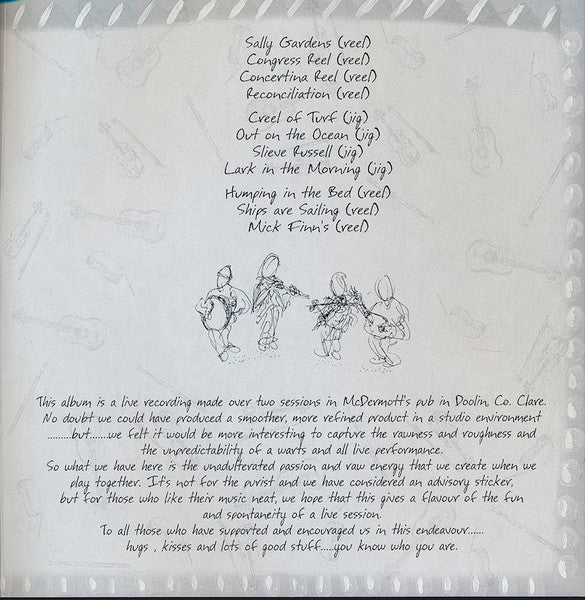 Sally Gardens (reel)
Congress Reel (reel)
Concertina Reel (reel)
Reconciliation (reel)
Creel of Turf (jig)
Out on the Ocean (jig)
Slieve Russell (jig)
Lark in the Morning (jig)
Humping in the Bed (reel)
Ships are Sailing (reel)
Mick Finn's (reel)
This album is a live recording made over two sessions in McDermott's pub in Doolin, Co. Clare.
No doubt we could have produced a smoother, more refined product in a studio environment
.........but.......we felt it would be more interesting to capture the rawness and roughness and
the unpredictability of a warts and all live performance.
So what we have here is the unadulterated passion and raw energy that we create when we
play together. It's not for the purist and we have considered an advisory sticker,
but for those who like their music neat, we hope that this gives a flavour of the fun
and spontaneity of a live session.
To all those who have supported and encouraged us in this endeavour......
hugs , kisses and lots of good stuff.....you know who you are.